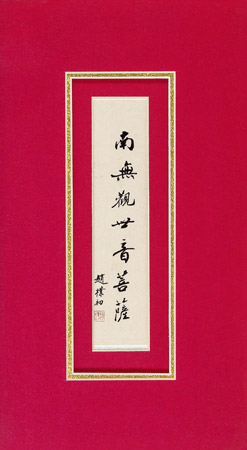 南無觀世音菩薩
趙樸初